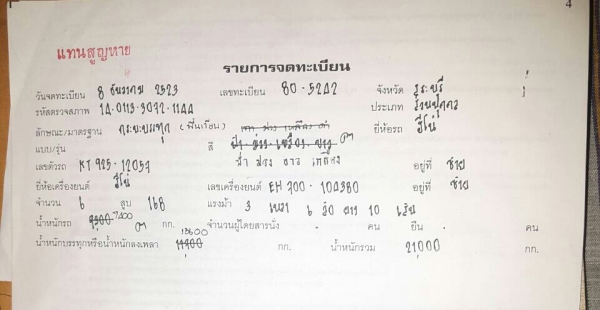 4
แทนสูญหาย
รายการจดทะเบียน
วันจดทะเบียน 8 ธันวาคม 2523 เลขทะเบียน 80-5242 จังหวัด สระบุรี
รหัสตรวจสภาพ ประเภท ส่วนบุคคล
ลักษณะ/มาตรฐาน กระบะบรรทุก (พื้นเรียบ) ยี่ห้อรถ ฮีโน่
แบบ/รุ่น สี
เลขตัวรถ KT 925-12057 ฟ้า ม่วง ขาว เหลือง อยู่ที่ ซ้าย
ยี่ห้อเครื่องยนต์ ฮีโน่ เลขเครื่องยนต์ EH 700-104380 อยู่ที่ ซ้าย
จำนวน 6 สูบ 168 แรงม้า 3 เพลา 6 ล้อ ยาง 10 เส้น
น้ำหนักรถ 7400 กก. จำนวนผู้โดยสารนั่ง - คน ยืน - คน
น้ำหนักบรรทุกหรือน้ำหนักลงเพลา 13600 กก. น้ำหนักรวม 21,000 กก.